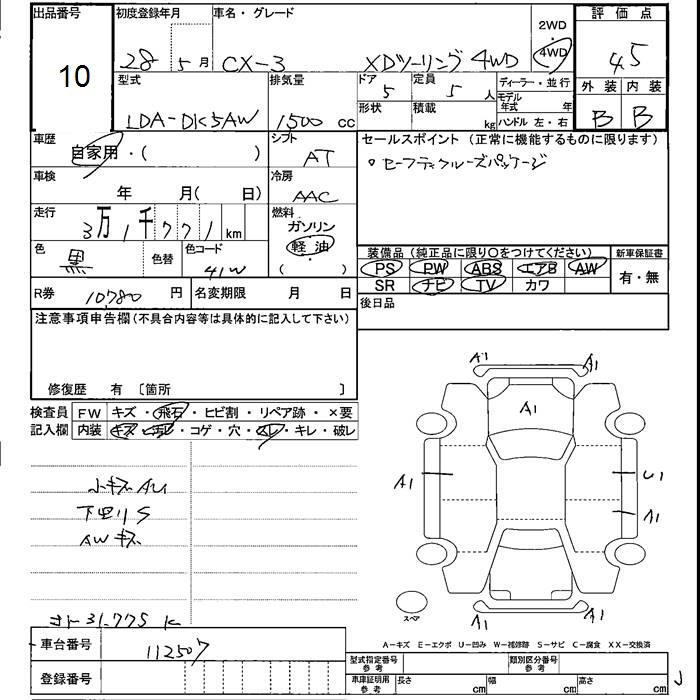 出品番号 10
初度登録年月 28 5月
車名・グレード CX-3 XDツーリング 4WD
2WD
4WD
評価点 4.5
型式 LDA-DK5AW
排気量 1500 cc
ドア 5
定員 5 人
形状
積載 kg
ディーラー・並行
モデル年式 年
ハンドル 左・右
外装 内装
B B
車歴 自家用・( )
シフト AT
セールスポイント(正常に機能するものに限ります)
。セーフティクルーズパッケージ
車検 年 月( 日)
冷房 AAC
走行 3万1千771km
燃料 ガソリン
軽油
( )
色 黒 色替 色コード 41W
装備品(純正品に限り〇をつけてください)
新車保証書
PS PW ABS エアB AW
有・無
SR ナビ TV カワ
R券 10780円 名変期限 月 日
後日品
注意事項申告欄(不具合内容等は具体的に記入して下さい)
修復歴 有〔箇所 〕
検査員 FW キズ・飛石・ヒビ割・リペア跡・×要
記入欄 内装 キズ・汚レ・コゲ・穴・スレ・キレ・破レ
小キズ AU
下回りS
AWキズ
31.775 K
車台番号 112507
登録番号
A1 A1
A1
A1 U1
A1
A1 A1
スペア
A-キズ E-エクボ U-凹み W-補修跡 S-サビ C-腐食 XX-交換済
型式指定番号 参考 類別区分番号 参考
車庫証明用 参考 長さ cm 幅 cm 高さ cm
J